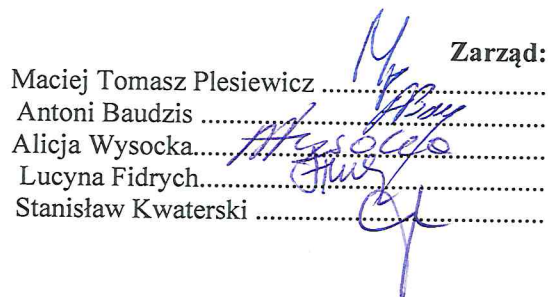 Zarząd:
Maciej Tomasz Plesiewicz ..................................
Antoni Baudzis ....................................................
Alicja Wysocka.....................................................
Lucyna Fidrych....................................................
Stanisław Kwaterski ............................................